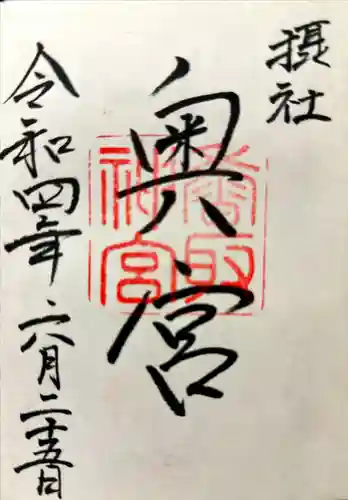 摂社
奥宮
香取
神宮
令和四年六月二十五日